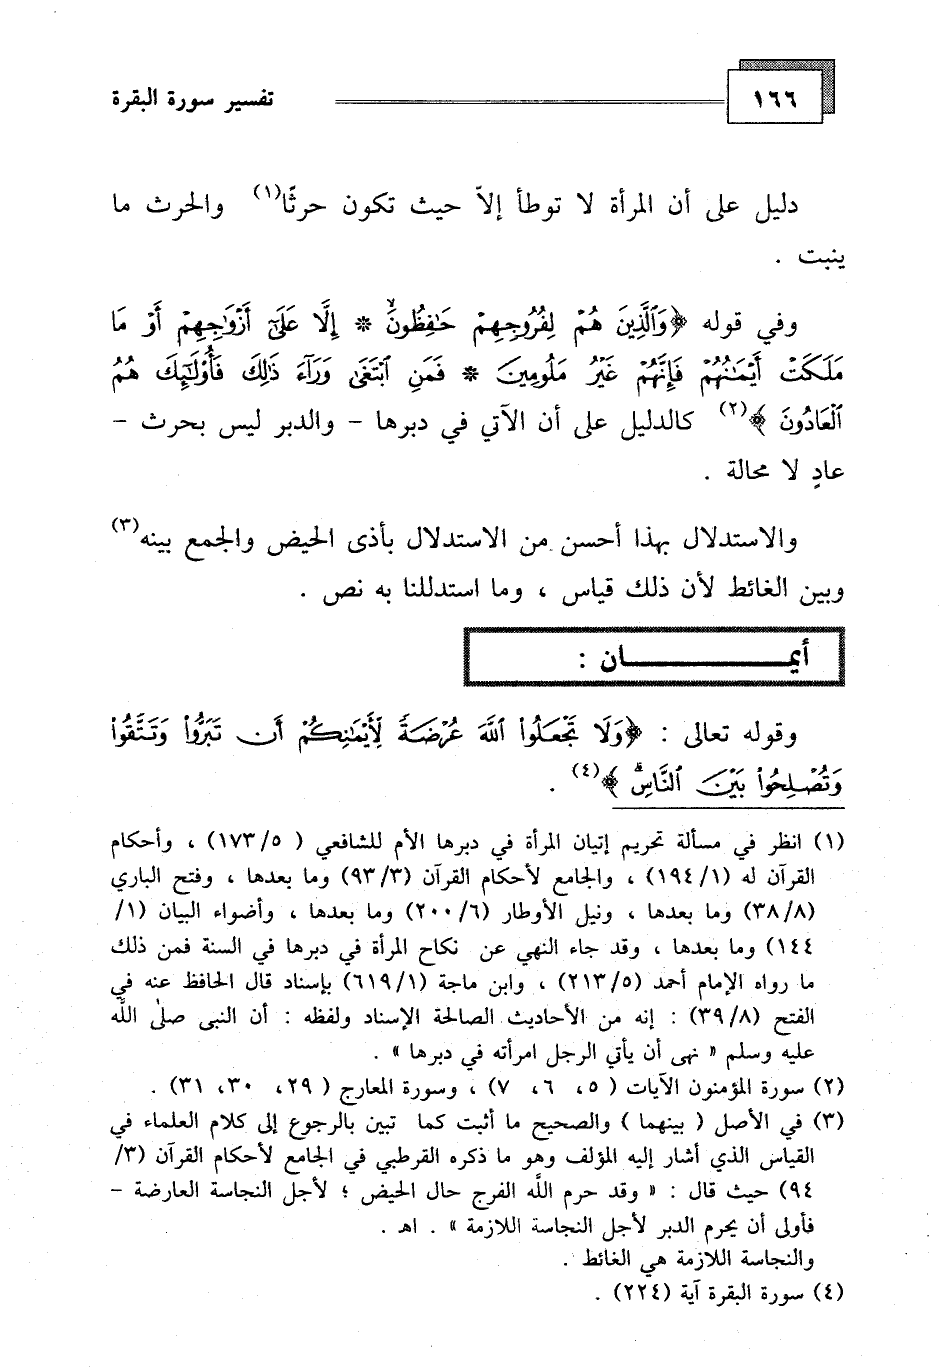 ١٦٦ تفسير سورة البقرة
دليل على أن المرأة لا توطأ إلاّ حيث تكون حرثًا(١) والحرث ما
ينبت .
وفي قوله ﴿وَٱلَّذِينَ هُمْ لِفُرُوجِهِمْ حَٰفِظُونَۙ * إِلَّا عَلَىٰٓ أَزْوَٰجِهِمْ أَوْ مَا
مَلَكَتْ أَيْمَٰنُهُمْ فَإِنَّهُمْ غَيْرُ مَلُومِينَ * فَمَنِ ٱبْتَغَىٰ وَرَآءَ ذَٰلِكَ فَأُوْلَٰٓئِكَ هُمُ
ٱلْعَادُونَ ﴾(٢) كالدليل على أن الآتي في دبرها - والدبر ليس بحرث -
عادٍ لا محالة .
والاستدلال بهذا أحسن من الاستدلال بأذى الحيض والجمع بينه(٣)
وبين الغائط لأن ذلك قياس ، وما استدللنا به نص .
أيمـــــــــان :
وقوله تعالى : ﴿وَلَا تَجْعَلُواْ ٱللَّهَ عُرْضَةً لِّأَيْمَٰنِكُمْ أَن تَبَرُّواْ وَتَتَّقُواْ
وَتُصْلِحُواْ بَيْنَ ٱلنَّاسِۗ ﴾(٤) .
(١) انظر في مسألة تحريم إتيان المرأة في دبرها الأم للشافعي ( ١٧٣/٥) ، وأحكام
القرآن له (١٩٤/١) ، والجامع لأحكام القرآن (٩٣/٣) وما بعدها ، وفتح الباري
(٣٨/٨) وما بعدها ، ونيل الأوطار (٢٠٠/٦) وما بعدها ، وأضواء البيان (١/
١٤٤) وما بعدها ، وقد جاء النهي عن نكاح المرأة في دبرها في السنة فمن ذلك
ما رواه الإمام أحمد (٢١٣/٥) ، وابن ماجة (٦١٩/١) بإسناد قال الحافظ عنه في
الفتح (٣٩/٨) : إنه من الأحاديث الصالحة الإسناد ولفظه : أن النبى صلى الله
عليه وسلم « نهى أن يأتي الرجل امرأته في دبرها » .
(٢) سورة المؤمنون الآيات ( ٥، ٦، ٧) ، وسورة المعارج ( ٢٩، ٣٠، ٣١) .
(٣) في الأصل ( بينهما ) والصحيح ما أثبت كما تبين بالرجوع إلى كلام العلماء في
القياس الذي أشار إليه المؤلف وهو ما ذكره القرطبي في الجامع لأحكام القرآن (٣/
٩٤) حيث قال : « وقد حرم الله الفرج حال الحيض ؛ لأجل النجاسة العارضة -
فأولى أن يحرم الدبر لأجل النجاسة اللازمة » . اهـ .
والنجاسة اللازمة هي الغائط .
(٤) سورة البقرة آية (٢٢٤) .